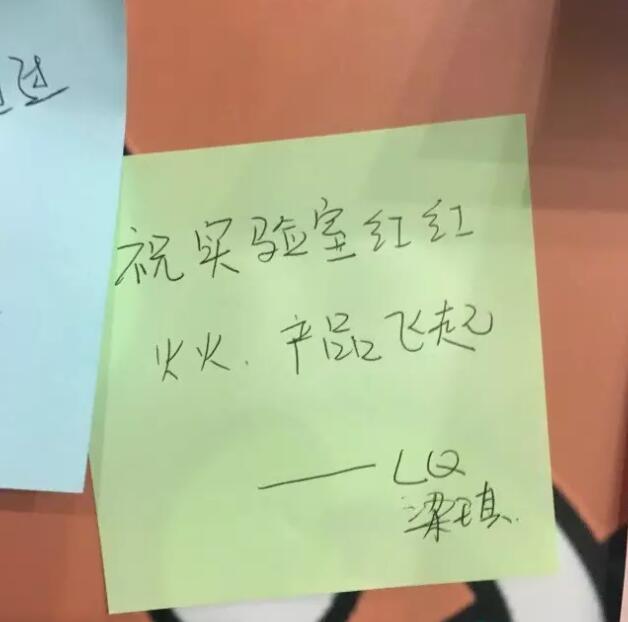 祝实验室红红
火火、产品飞起
—— LQ
梁琪.